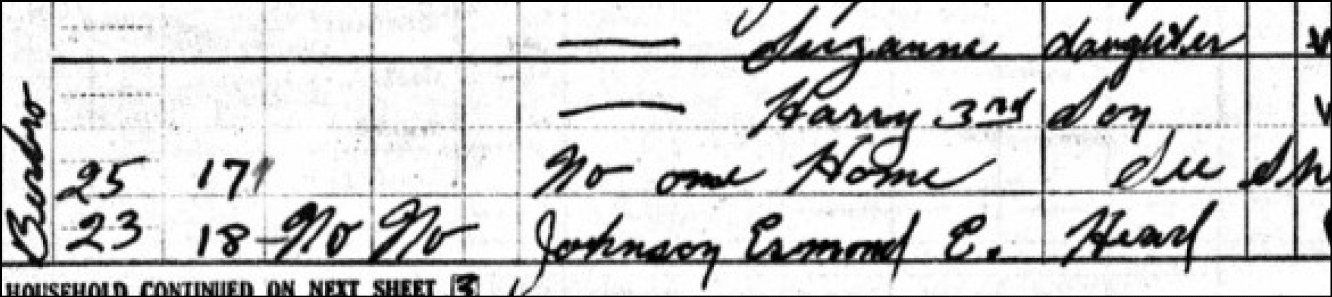 — Suzanne daughter
— Harry 3rd Son
25 17 No one Home See Sh
23 18 No No Johnson Esmond E. Head
HOUSEHOLD CONTINUED ON NEXT SHEET 3